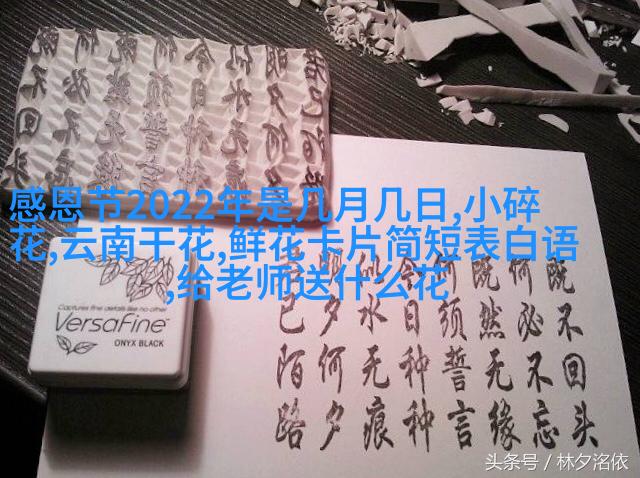 感恩节2022年是几月几日,小碎
花,云南干花,鲜花卡片简短表白语
,给老师送什么花
Captures fine details like no other
VersaFine
ONYX BLACK
既不回头
何必不忘
既然无缘
何须誓言
今日种种
似水无痕
明夕何夕
君已陌路
头条号 / 林夕洺依